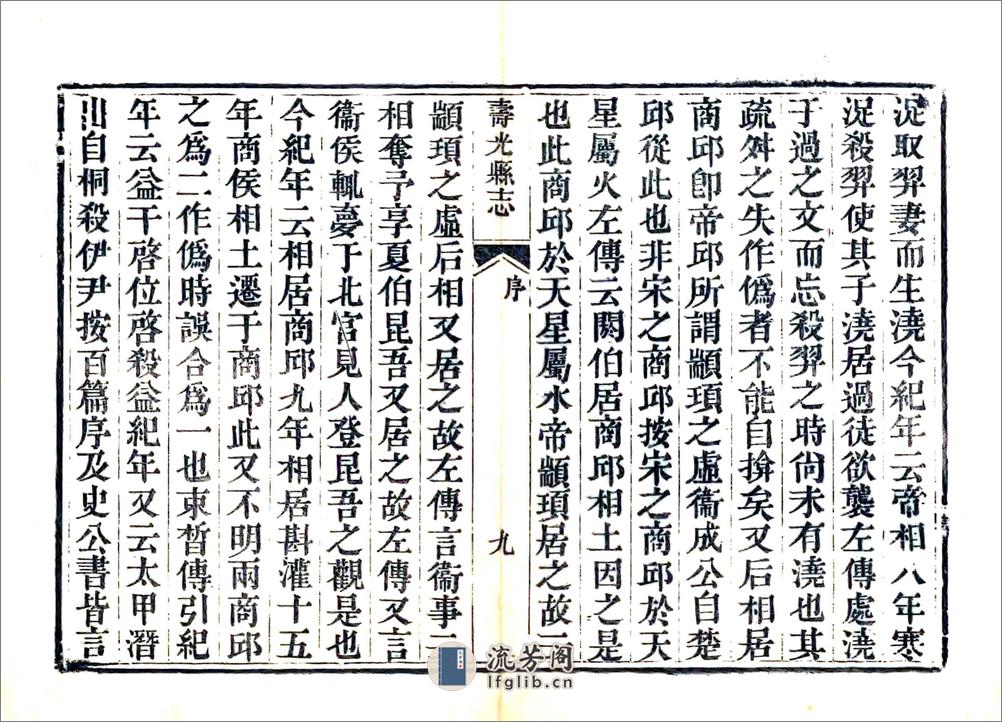 浞取羿妻而生澆今紀年云帝相八年寒
浞殺羿使其子澆居過徒欲襲左傳處澆
于過之文而忘殺羿之時尙未有澆也其
疏舛之失作僞者不能自揜矣又后相居
商邱卽帝邱所謂顓頊之虛衞成公自楚
邱從此也非宋之商邱按宋之商邱於天
星屬火左傳云閼伯居商邱相土因之是
也此商邱於天星屬水帝顓頊居之故云
壽光縣志
序
九
顓頊之虛后相又居之故左傳言衞事云
相奪予享夏伯昆吾又居之故左傳又言
衞侯輒夢于北宮見人登昆吾之觀是也
今紀年云相居商邱九年相居斟灌十五
年商侯相土遷于商邱此又不明兩商邱
之爲二作僞時誤合爲一也束皙傳引紀
年云益干啓位啓殺益紀年又云太甲潛
出自桐殺伊尹按百篇序及史公書皆言
流芳阁
lfglib.cn